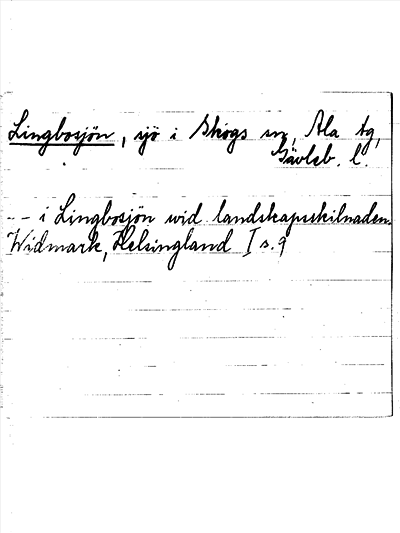 Lingbosjön, sjö i Skogs sn, Ala tg,
Gävleb. l.
-- i Lingbosjön wid landskapsskilnaden.
Widmark, Helsingland I s. 9